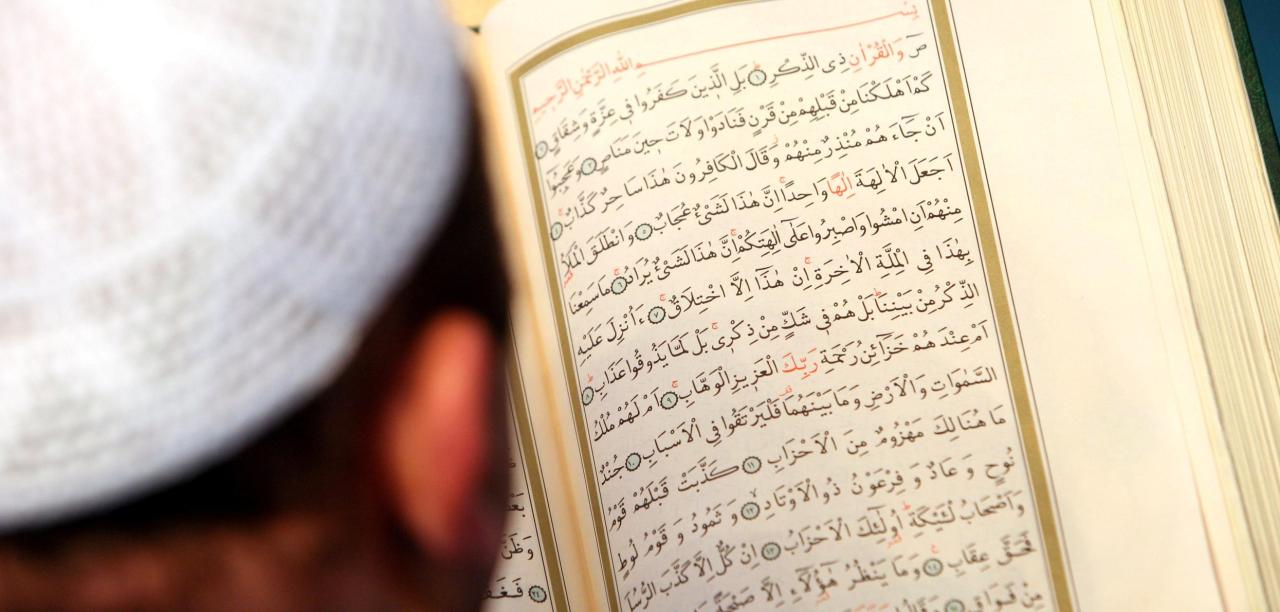 بِسْمِ اللّٰهِ الرَّحْمٰنِ الرَّحِيمِ
صٓ وَالْقُرْاٰنِ ذِى الذِّكْرِۜ ﴿١﴾ بَلِ الَّذِينَ كَفَرُوا فِى عِزَّةٍ وَشِقَاقٍ ﴿٢﴾
كَمْ اَهْلَكْنَا مِنْ قَبْلِهِمْ مِنْ قَرْنٍ فَنَادَوْا وَلَاتَ حِينَ مَنَاصٍ ﴿٣﴾ وَعَجِبُٓوا
اَنْ جَٓاءَ هُمْ مُنْذِرٌ مِنْهُمْ وَقَالَ الْكَافِرُونَ هٰذَا سَاحِرٌ كَذَّابٌۚ ﴿٤﴾
اَجَعَلَ الْاٰلِهَةَ اِلٰهًا وَاحِدًاۚ اِنَّ هٰذَا لَشَىْءٌ عُجَابٌ ﴿٥﴾ وَانْطَلَقَ الْمَلَاُ
مِنْهُمْ اَنِ امْشُوا وَاصْبِرُوا عَلٰٓى اٰلِهَتِكُمْۚ اِنَّ هٰذَا لَشَىْءٌ يُرَادُۚ ﴿٦﴾ مَا سَمِعْنَا
بِهٰذَا فِى الْمِلَّةِ الْاٰخِرَةِۚ اِنْ هٰذَٓا اِلَّا اخْتِلَاقٌۚ ﴿٧﴾ ءَاُنْزِلَ عَلَيْهِ
الذِّكْرُ مِنْ بَيْنِنَاۜ بَلْ هُمْ فِى شَكٍّ مِنْ ذِكْرِىۚ بَلْ لَمَّا يَذُوقُوا عَذَابِۜ ﴿٨﴾
اَمْ عِنْدَ هُمْ خَزَٓائِنُ رَحْمَةِ رَبِّكَ الْعَزِيزِ الْوَهَّابِۚ ﴿٩﴾ اَمْ لَهُمْ مُلْكُ
السَّمٰوَاتِ وَالْاَرْضِ وَمَا بَيْنَهُمَا فَلْيَرْتَقُوا فِى الْاَسْبَابِ ﴿١٠﴾ جُنْدٌ
مَا هُنَالِكَ مَهْزُومٌ مِنَ الْاَحْزَابِ ﴿١١﴾ كَذَّبَتْ قَبْلَهُمْ قَوْمُ
نُوحٍ وَ عَادٌ وَ فِرْعَوْنُ ذُو الْاَوْتَادِ ﴿١٢﴾ وَ ثَمُودُ وَ قَوْمُ لُوطٍ
وَاَصْحَابُ لْـَٔيْكَةِۜ اُولٰٓئِكَ الْاَحْزَابُ ﴿١٣﴾ اِنْ كُلٌّ اِلَّا كَذَّبَ الرُّسُلَ
فَحَقَّ عِقَابِ ﴿١٤﴾ وَمَا يَنْظُرُ هٰٓؤُلَٓاءِ اِلَّا صَيْحَةً
مِنْ فَوَاقٍ ﴿١٥﴾ وَقَالُوا